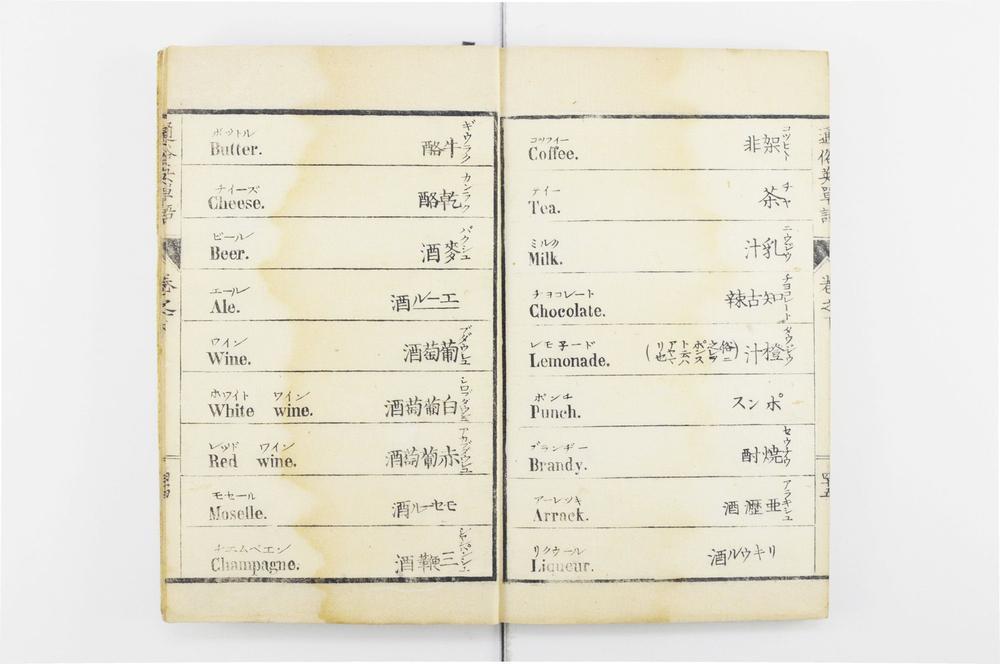 通俗英單語
ボットル
Butter.
酪牛
ギウラク
チイーズ
Cheese.
酪乾
カンラク
ビール
Beer.
酒麥
バクシュ
エール
Ale.
酒ルーエ
ワイン
Wine.
酒萄葡
ブダウシュ
ホワイト ワイン
White wine.
酒萄葡白
シロブダウシュ
レッド ワイン
Red wine.
酒萄葡赤
アカブダウシュ
モセール
Moselle.
酒ルーセモ
チエムペエン
Champagne.
酒鞭三
シャンパンシュ
コッフイー
Coffee.
非架
コッヒー
テイー
Tea.
茶
チヤ
ミルク
Milk.
汁乳
ニウジウ
チョコレート
Chocolate.
辣古知
チョコレート
レモ子ード
Lemonade.
汁橙
ポンチ
Punch.
スンポ
ブランヂー
Brandy.
酎燒
セウチウ
アーレッキ
Arrack.
酒瀝亜
アラキシュ
リクウール
Liqueur.
酒ルウキリ
通俗英單語
卷之下
四十五